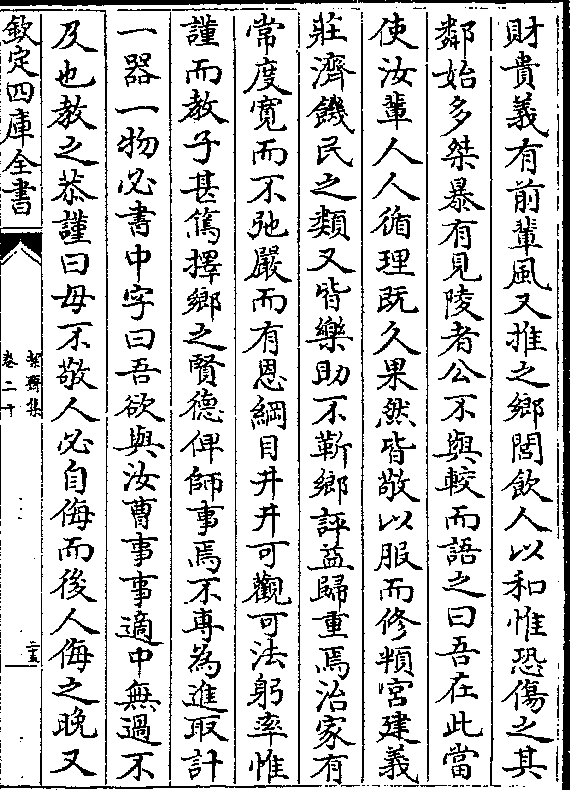 財貴義有前輩風又推之鄉閭飲人以和惟恐傷之其
鄰始多桀暴有見陵者公不與較而語之曰吾在此當
使汝輩人人循理既久果然皆敬以服而修頖宮建義
莊濟饑民之類又皆樂助不靳鄉評益歸重焉治家有
常度寬而不弛嚴而有恩綱目井井可觀可法躬率惟
謹而教子甚篤擇鄉之賢德俾師事焉不專為進取計
一器一物必書中字曰吾欲與汝曹事事適中無過不
及也教之恭謹曰毋不敬人必自侮而後人侮之晚又
欽定四庫全書
絜齋集
卷二十
二十五